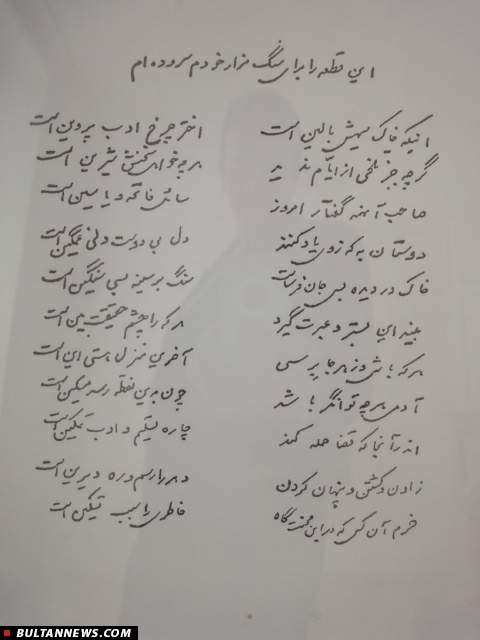 این قطعه را برای سنگ مزار خودم سروده ام
اینکه خاک سیهش بالین است اختر چرخ ادب پروین است
گرچه جز تلخی از ایام ندید هرچه خواهی سخنش شیرین است
صاحب آنهمه گفتار امروز سائل فاتحه و یاسین است
دوستان به که ز وی یاد کنند دل بی دوست دلی غمگین است
خاک در دیده بسی جان فرساست سنگ بر سینه بسی سنگین است
بیند این بستر و عبرت گیرد هرکه را چشم حقیقت بین است
هرکه باشی و ز هرجا برسی آخرین منزل هستی این است
آدمی هرچه توانگر باشد چون بدین نقطه رسد مسکین است
اندر آنجا که قضا حمله کند چاره تسلیم و ادب تمکین است
زادن و کشتن و پنهان کردن دهر را رسم و ره دیرین است
خرم آن کس که در این محنت گاه خاطری را سبب تسکین است
BULTANNEWS.COM